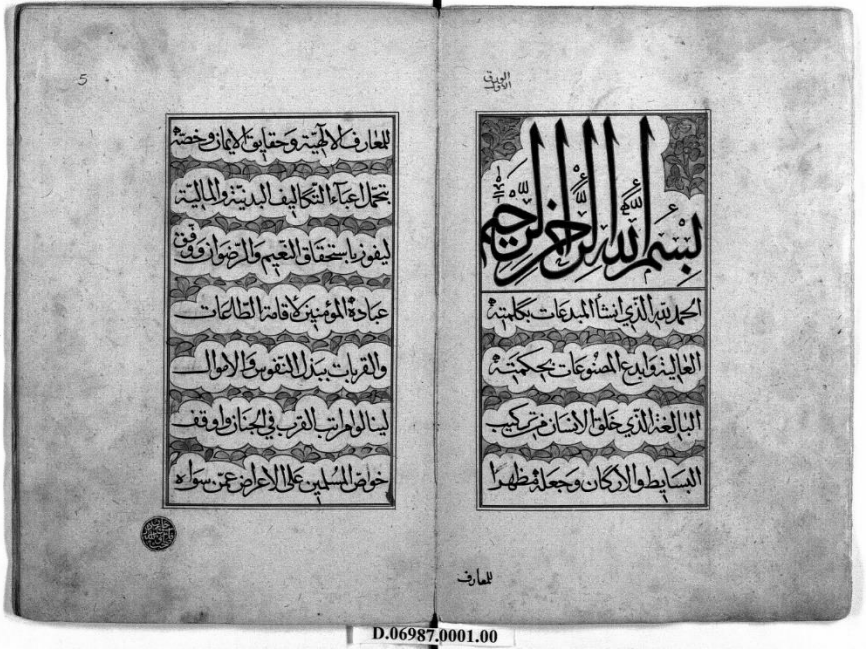 الورق
الاول
بسم الله الرحمن الرحيم
الحمد لله الذي انشأ المبدعات بكلمته
العالية وابدع المصنوعات بحكمته
البالغة الذي خلق الانسان من تركيب
البسايط والاركان وجعله مظهرا
للمعارف
5
للمعارف الالهية وحقايق الايمان وخصه
بتحمل اعباء التكاليف البدنية والمالية
ليفوز باستحقاق النعيم والرضوان ووفق
عباده المؤمنين لاقامة الطاعات
والقربات ببذل النفوس والاموال
لينالوا مراتب القرب في الجنان واوقف
خواص المسلمين على الاعراض عمن سواه
D.06987.0001.00